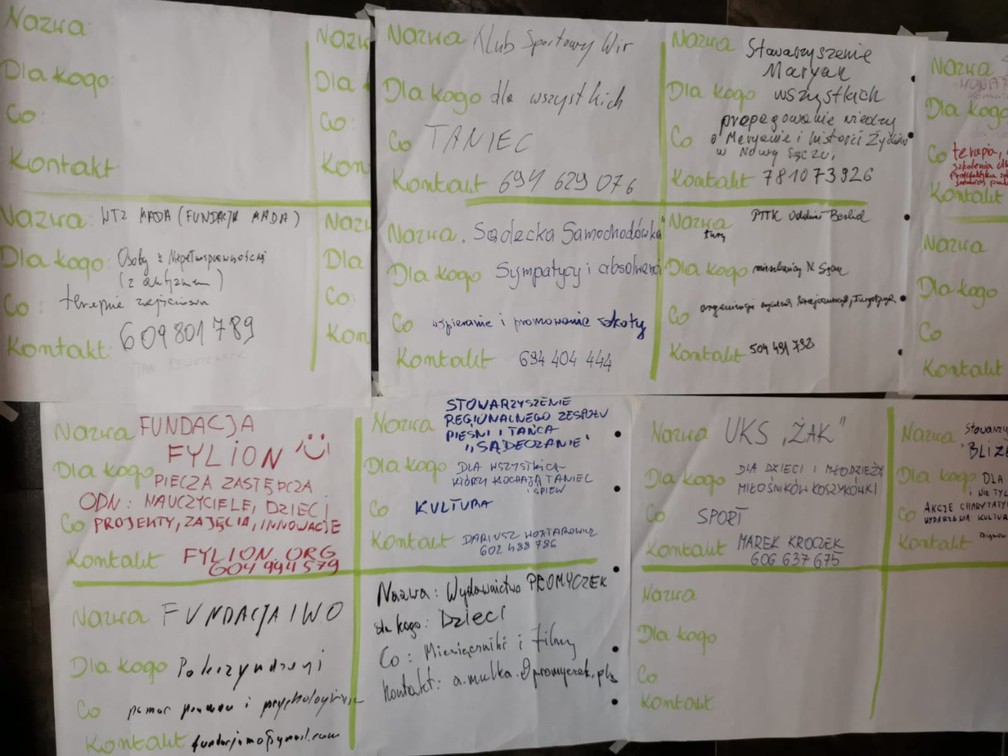 Nazwa
Dla kogo:
Co:
Kontakt
Nazwa
Dla
Co:
Kon
Nazwa Klub Sportowy Wir
Dla kogo dla wszystkich
Co TANIEC
Kontakt 694 629 076
Nazwa Stowarzyszenie
Maryan
Dla kogo wszystkich
propagowanie wiedzy
Co o Maryanie i historii Żydów
w Nowym Sączu.
Kontakt 781073926
Nazwa
Dla kogo
Co terapia,
Kontakt
Nazwa: WTZ MADA (FUNDACJA MADA)
Dla kogo: Osoby z Niepełnosprawnością
(z autyzmem)
Co: terapia zajęciowa
Kontakt: 609801789
Nazwa
Dla
Co:
Kon
Nazwa. Sądecka Samochodówka
Dla kogo Sympatycy i absolwenci
Co wspieranie i promowanie szkoły
Kontakt 694 404 444
Nazwa PTTK Oddział Beskid
Dla kogo mieszkańcy N. Sącza
Co
Kontakt 504 491 732
Nazwa
Dla kogo
Co
Kontakt
Nazwa FUNDACJA
FYLION
Dla kogo PIECZA ZASTĘPCZA
ODN: NAUCZYCIELE, DZIECI
Co PROJEKTY, ZAJĘCIA, INNOWACJE
Kontakt FYLION.ORG
604 944 579
Nazwa STOWARZYSZENIE
REGIONALNEGO ZESPOŁU
PIEŚNI I TAŃCA
"SĄDECZANIE"
Dla kogo DLA WSZYSTKICH
KTÓRZY KOCHAJĄ TANIEC
I ŚPIEW
Co KULTURA
Kontakt DARIUSZ
602 488 786
Nazwa UKS „ŻAK"
Dla kogo DLA DZIECI I MŁODZIEŻY
MIŁOŚNIKÓW KOSZYKÓWKI
Co SPORT
Kontakt MAREK KROCZEK
606 637 675
Nazwa
Dla kogo DLA
Co AKCJE
WYDARZENIA
Kontakt
Nazwa FUNDACJA IWO
Dla kogo Pokrzywdzeni
Co pomoc prawna i psychologiczna
Kontakt
Nazwa: Wydawnictwo PROMYCZEK
dla kogo: Dzieci
Co: Miesięczniki i filmy
Kontakt: a.mulka@promyczek.pl
Nazwa
Dla kogo
Co
Kontakt